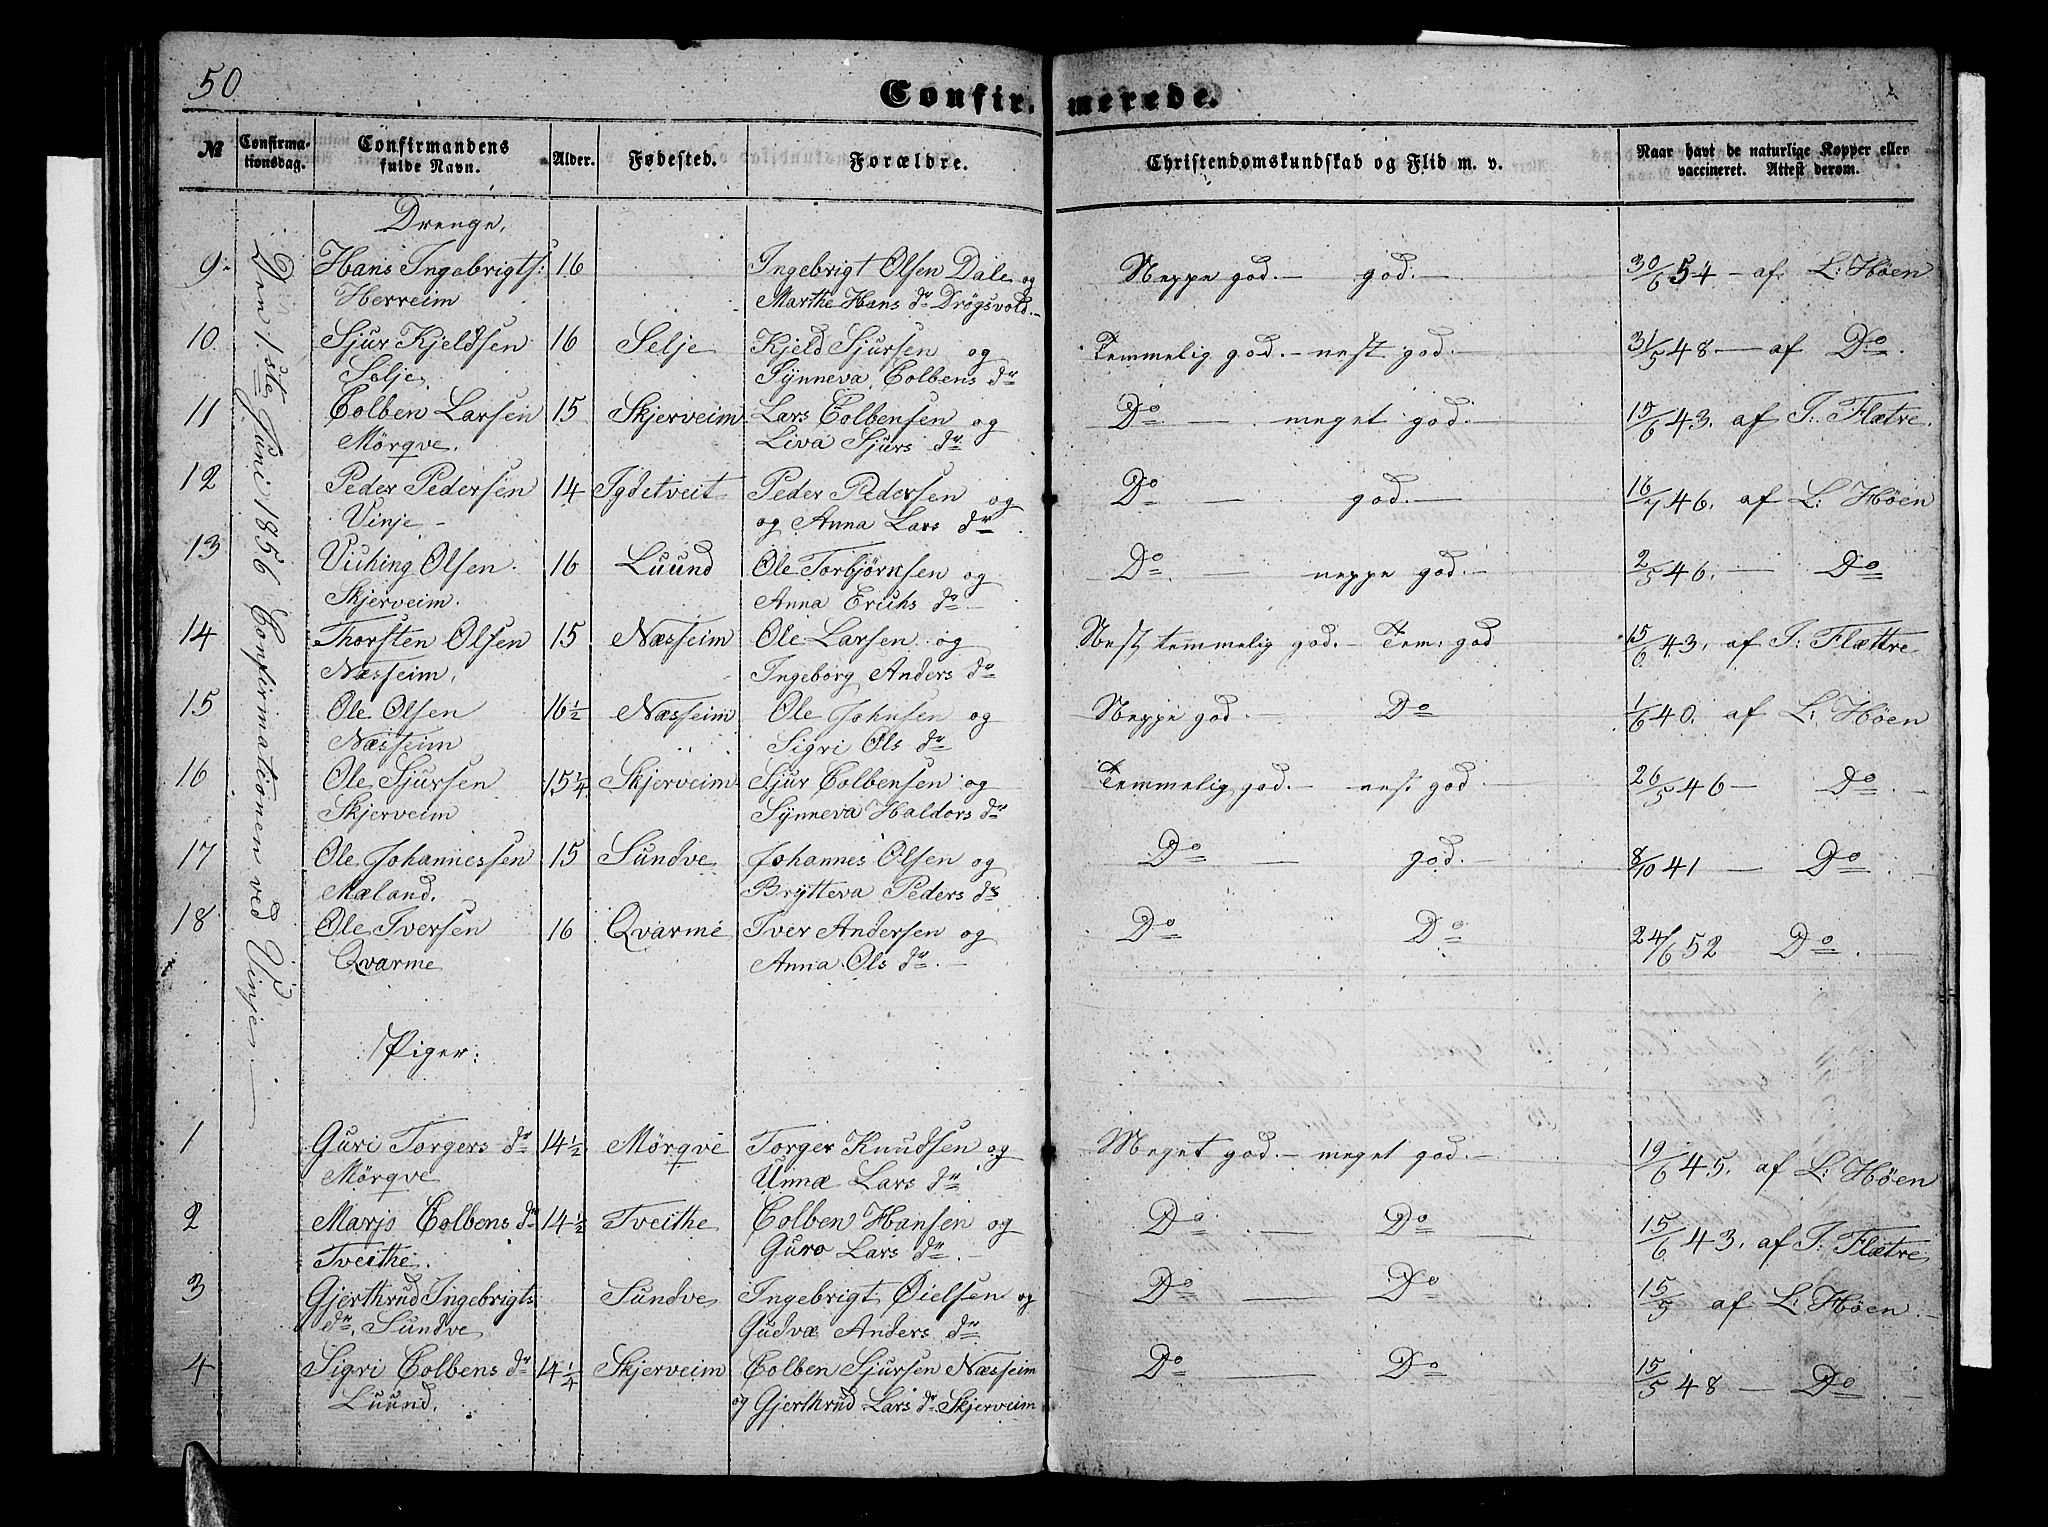 50
Confirmerede.
№ Confirma-tionsdag. Confirmandens fulde Navn. Alder. Fødested. Forældre. Christendomskundskab og Flid m. v. Naar havt de naturlige Kopper eller vaccineret. Attest derom.
Den 1ste Juni 1856 Confirmationen ved Vinje.
Drenge.
9. Hans Ingebrigts: 16 Ingebrigt Olsen Dale og Neppe god. — god. — 30/6 54 — af L: Høen
Herreim Marthe Hans dr Drøgsvold.
10. Sjur Kjeldsen 16 Selje Kjeld Sjursen og Temmelig god. — nest god. — 31/5 48 — af Do
Selje. Synneva Colbens dr
11 Colben Larsen 15 Skjerveim Lars Colbensen og Do — meget god. — 15/6 43. af I: Flætre.
Mörqve. Liva Sjurs dr
12 Peder Pedersen 14 Igdetveit Peder Pedersen og Do — god. — 16/7 46. af L: Høen
Vinje — og Anna Lars dr
13 Viking Olsen 16 Luund Ole Torbjørnsen og Do — neppe god. — 2/5 46. — Do
Skjerveim. Anna Erichs dr
14 Thorsten Olsen 15 Næsseim Ole Larsen og Nest temmelig god. — Tem: god 15/6 43. af I: Flættre
Næsseim. Ingeborg Anders dr
15 Ole Olsen 16½ Næsseim Ole Johnsen og Neppe god. — Do 1/6 40. af L: Høen
Næsseim Sigri Ols dr
16 Ole Sjursen 15¼ Skjerveim Sjur Colbensen og Temmelig god. — nest god — 26/5 46 — Do
Skjerveim Synneva Haldors dr
17 Ole Johannessen 15 Sundve Johannes Olsen og Do — god. — 8/10 41 — Do
Mæland. Brytteva Peders dr
18. Ole Iversen 16 Qvarme Iver Andersen og Do Do 24/6 52 Do
Qvarme Anna Ols dr. —
Piger:
1 Guri Torgers dr 14½ Mörqve Torger Knudsen og Meget god. — meget god. — 19/6 45. af L: Høen
Mörqve Unnæ Lars dr
2 Marjo Colbens dr 14½ Tveithe Colben Hansen og Do — Do — 15/6 43. af I: Flætre
Tveithe. Guro Lars dr. —
3 Gjerthrud Ingebrigts Sundve Ingebrigt Øielsen og Do — Do 15/5 af L: Høen.
dr. Sundve Gudvæ Anders dr
4 Sigri Colbens dr 14¼ Skjerveim Colben Sjursen Næsseim Do — Do 15/5 48 — Do
Luund. og Gjerthrud Lars dr Skjerveim